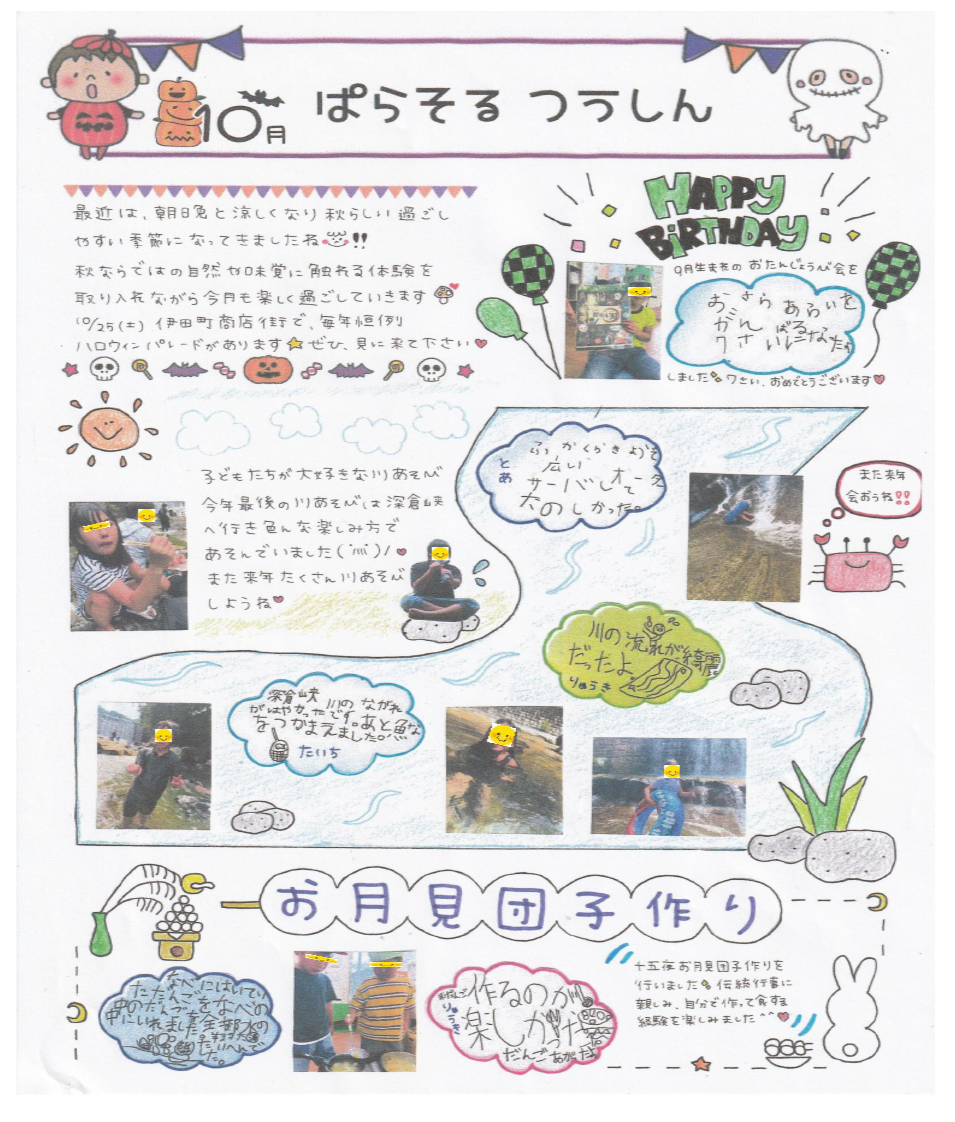 10月 ぱらそる つうしん
最近は、朝晩と涼しくなり秋らしい過ごし
やすい季節になってきましたね!!
秋ならではの自然や味覚に触れる体験を
取り入れながら今月も楽しく過ごしていきます
10/25(土) 伊田町商店街で、毎年恒例
ハロウィンパレードがあります ぜひ、見に来て下さい
HAPPY
BIRTHDAY
9月生まれの おたんじょうび会を
おさらあらいを
がんばる
7さいになった
しました 7さい、おめでとうございます
子どもたちが大好きな川あそび
今年最後の川あそびは深倉峡
へ行き色んな楽しみ方で
あそんでいました
また来年たくさん川あそび
しようね
広い
たのしかった。
また来年
会おうね!!
川の流れが綺麗
だったよ
りゅうき
深倉峡 川のながれ
がはやかったです。あと魚
をつかまえました。
たいち
お月見団子作り
なべにはいてい
作るのが
楽しかった
りゅうき
だんご
十五夜お月見団子作りを
行いました 伝統行事に
親しみ、自分で作って食する
経験を楽しみました^^